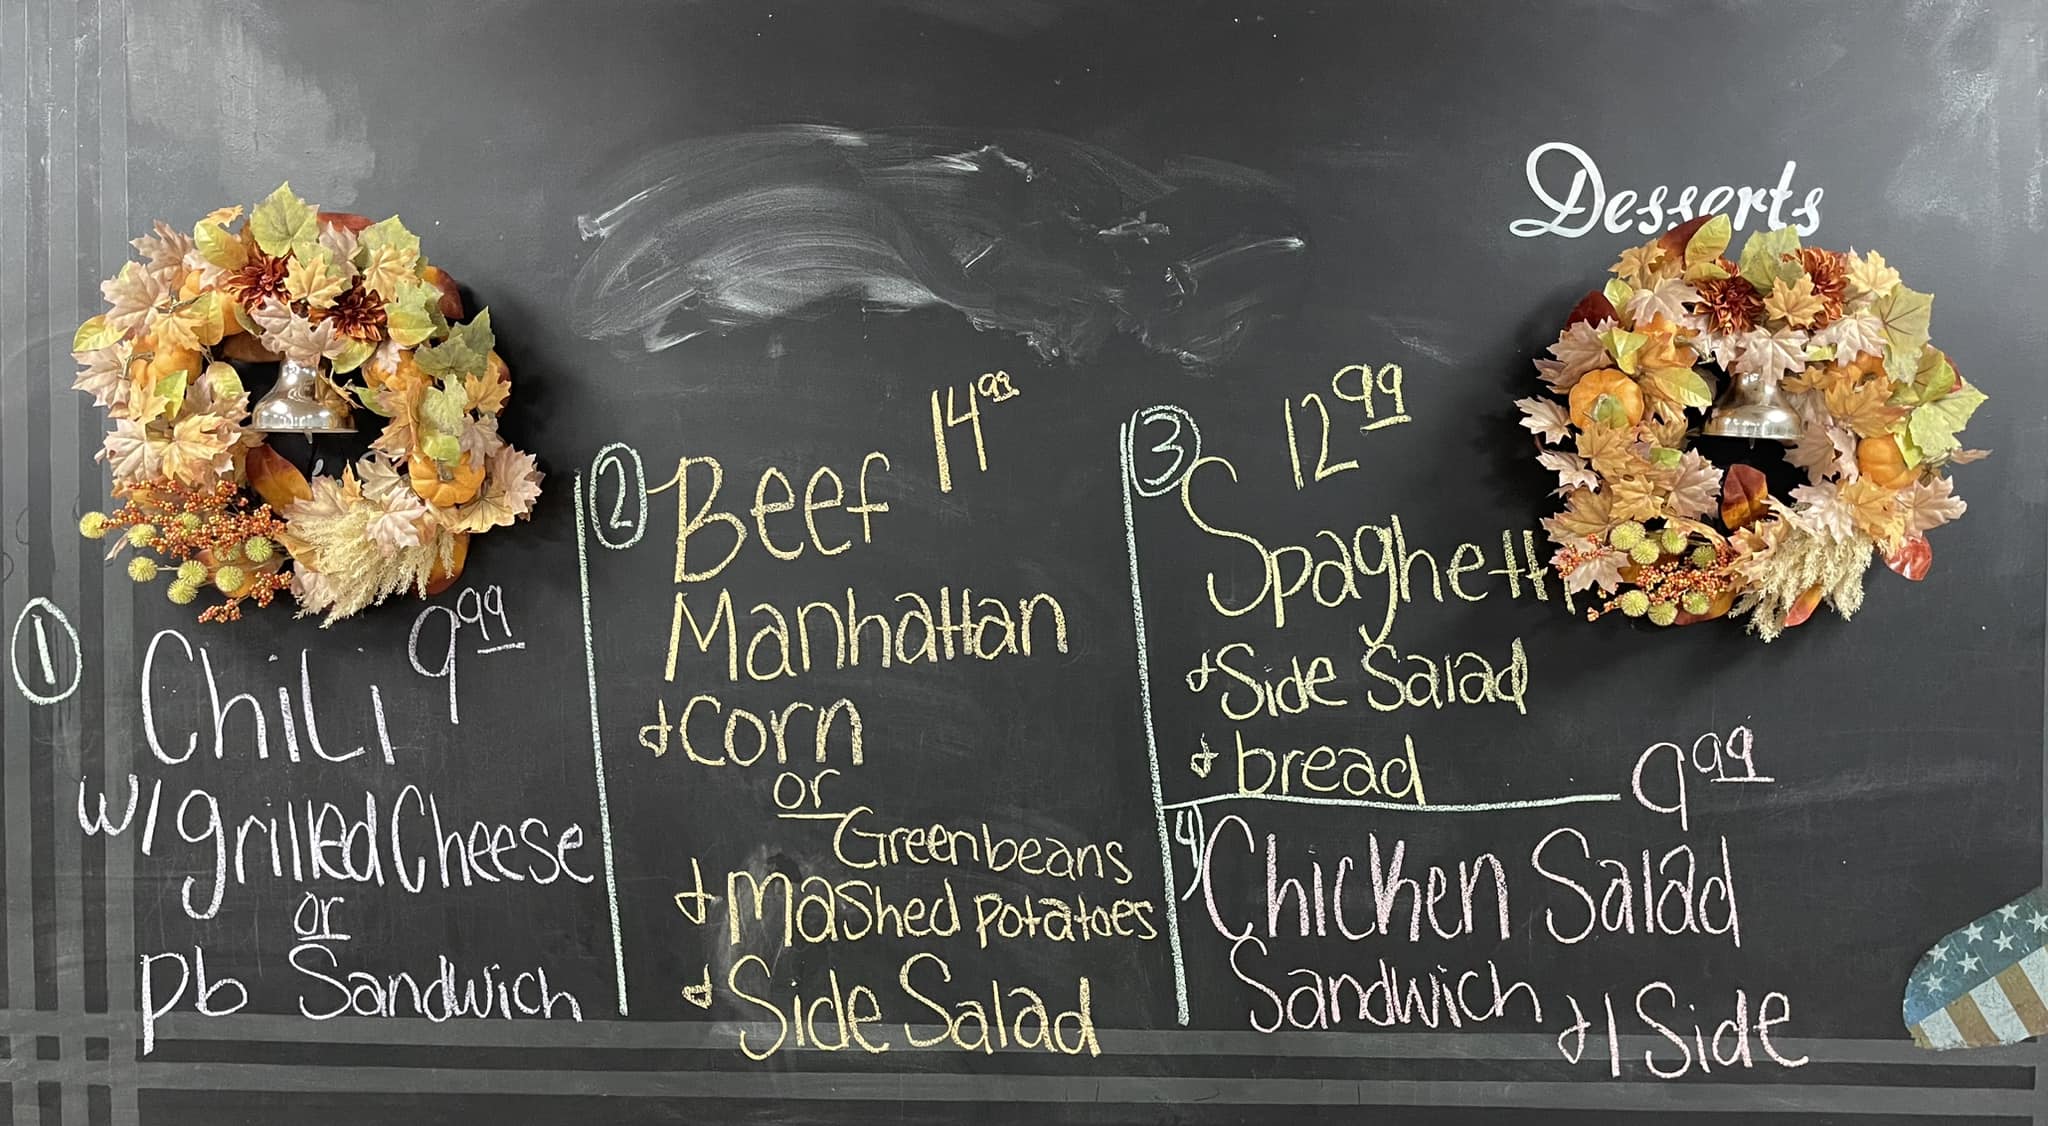 Desserts
① Chili 9.99
w/ grilled Cheese
or
pb Sandwich
② Beef 14.99
Manhattan
& Corn
or
Greenbeans
& mashed potatoes
& Side Salad
③ 12.99
Spaghetti
& Side Salad
& bread
9.99
4) Chicken Salad
Sandwich & 1 Side